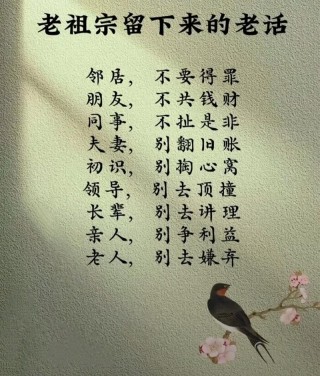 老祖宗留下来的老话
邻居，不要得罪
朋友，不共钱财
同事，不扯是非
夫妻，别翻旧账
初识，别掏心窝
领导，别去顶撞
长辈，别去讲理
亲人，别争利益
老人，别去嫌弃